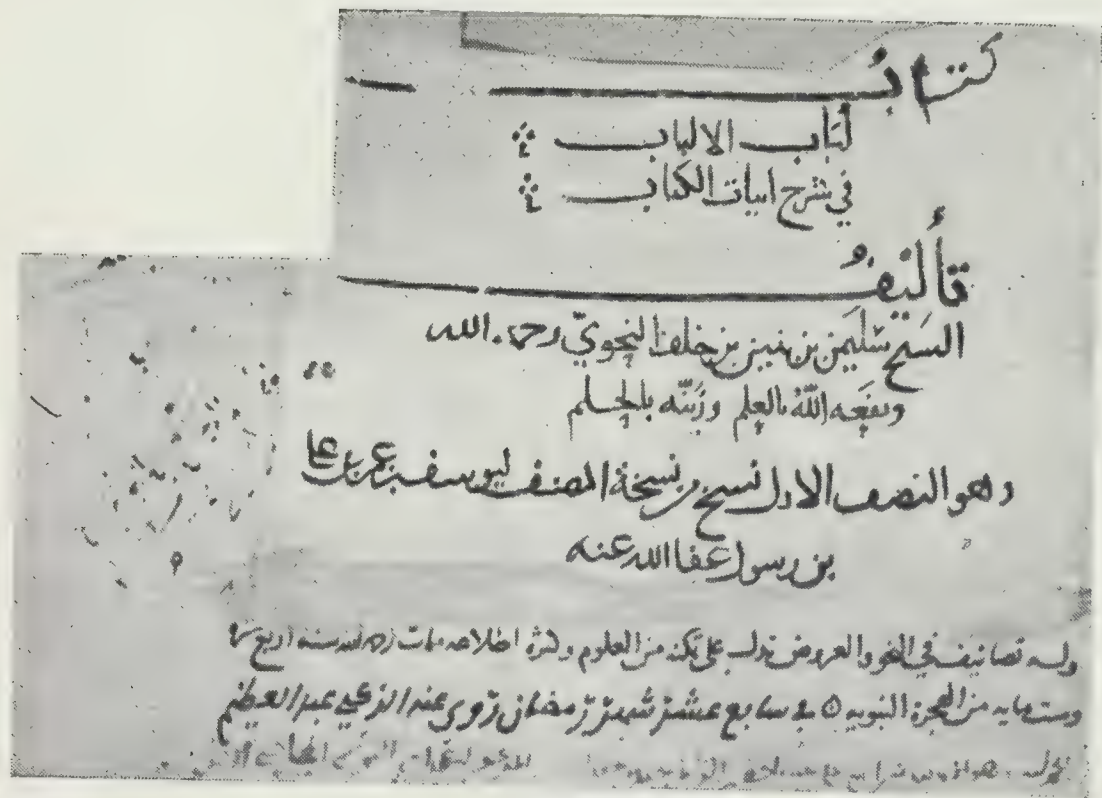 كتابُ
لُبَاب الالباب
في شرح ابيات الكتاب
تأليفُ
الشيخ سُلَيمن بن بنين بن خلف النحويّ رحمه الله
ونفعه اللهُ بالعلم وزَيّنه بالحلم
وهو النصف الاول نسخ من نسخة المصنف ليوسف بن عمر بن علي
بن رسول عفا الله عنه
وله تصانيف في النحو والعروض تدل على تمكنه من العلوم وكثرة اطلاعه مات رحمه الله سنة اربع
وستمايه من الهجرة النبويه في سابع عشر شهر رمضان روى عنه الزكي عبد العظيم